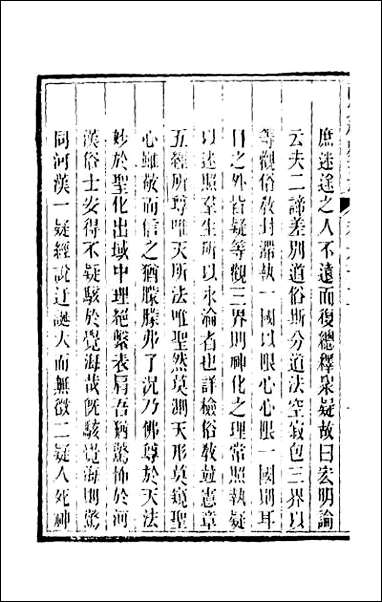 庶迷途之人不遠而復總釋衆疑故曰宏明論
云夫二諦差別道俗斯分道法空寂包三界以
等觀俗教封滯執一國以限心心限一國則耳
目之外皆疑等觀三界則神化之理常照執疑
以迷照羣生所以永淪者也詳檢俗教並憲章
五經所尊唯天所法唯聖然莫測天形莫窺聖
心雖敬而信之猶矇矇弗了況乃佛尊於天法
妙於聖化出域中理絕繫表肩吾猶驚怖於河
漢俗士安得不疑駭於覺海哉既駭覺海則驚
同河漢一疑經說迂誕大而無徵二疑人死神